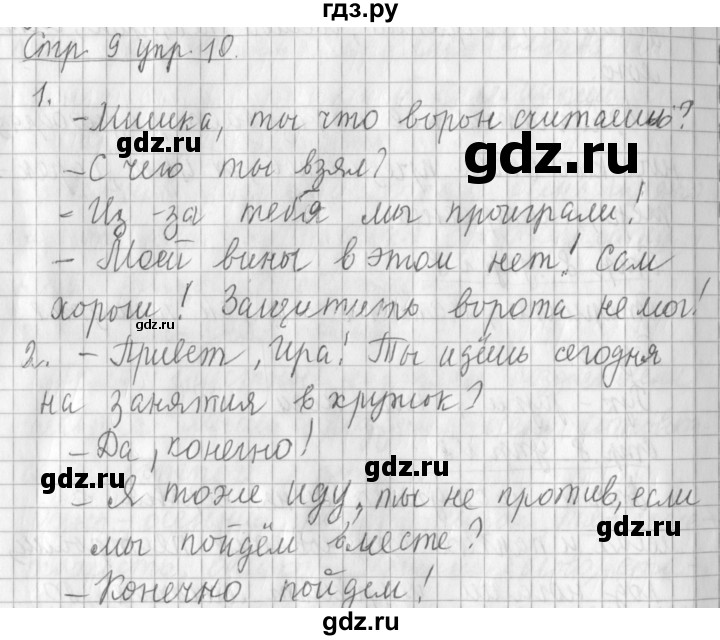 гдз.ру
Стр. 9 упр. 10.
1.
- Мишка, ты что ворон считаешь?
gdz.ru gdz.ru
- С чего ты взял?
- Из-за тебя мы проиграли!
gdz.ru gdz.ru
- Моей вины в этом нет! Сам
хорош! Защитить ворота не мог!
gdz.ru
2. - Привет, Ира! Ты идёшь сегодня
на занятия в кружок?
- Да, конечно!
gdz.ru gdz.ru
- Я тоже иду, ты не против, если
gdz.ru
мы пойдём вместе?
gdz.ru
- Конечно пойдем!
gdz.ru